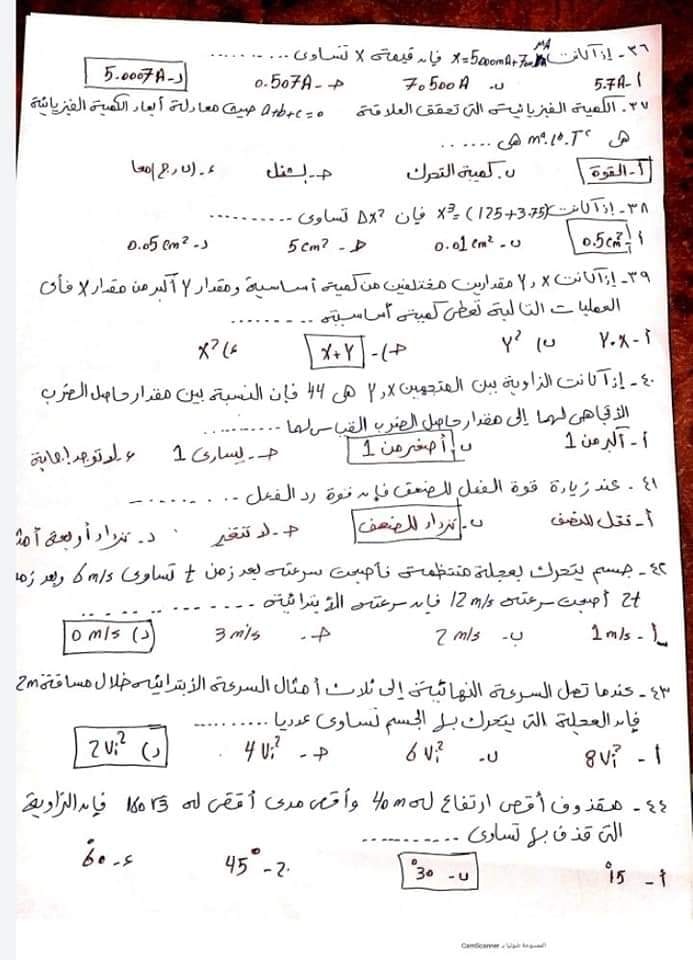 ٣٦- إذا كانت x=5000mA+700µA فإن قيمة x تساوى ........
أ- 5.7A ب- 70500A حـ- 0.507A د- 5.0007A
٣٧. الكمية الفيزيائية التى تحقق العلاقة A+b+c=0 حيث معادلة أبعاد الكمية الفيزيائية
هى mᵃ.Lᵇ.Tᶜ هى ......
أ- القوة ب. كمية التحرك حـ- الشغل ء. (ب، ج) معا
٣٨- إذا كانت x³=(125+3.75) فإن Δx² تساوى ..........
أ- 0.5cm² ب- 0.01cm² حـ- 5cm² د- 0.05cm²
٣٩- إذا كانت x, y مقدارين مختلفين من كمية أساسية ومقدار y أكبر من مقدار x فأى
العمليات التالية تعطى كمية أساسية ........
أ- y.x ب) y² حـ)- x+y ء) x²
٤٠- إذا كانت الزاوية بين المتجهين x, y هى 44 فإن النسبة بين مقدار حاصل الضرب
الاتجاهى لهما إلى مقدار حاصل الضرب القياسى لهما ..........
أ- أكبر من 1 ب) أصغر من 1 حـ- يساوى 1 ء. لا توجد إجابة
٤١. عند زيادة قوة الفعل للضعف فإن قوة رد الفعل .........
أ- تقل للنصف ب- تزداد للضعف حـ- لا تتغير د. تزداد أربعة
٤٢- جسم يتحرك بعجلة منتظمة فأصبحت سرعته بعد زمن t تساوى 6 m/s وبعد
2t أصبحت سرعته 12 m/s فإن سرعته الابتدائية ...........
أ- 1m/s ب- 2 m/s حـ- 3 m/s د) 0 m/s
٤٣- عندما تصل السرعة النهائية إلى ثلاث أمثال السرعة الابتدائية خلال مسافة 2m
فإن العجلة التى يتحرك بها الجسم تساوى عدديا ..........
أ- 8Vi² ب- 6Vi² حـ- 4Vi² د) 2Vi²
٤٤- مقذوف أقصى ارتفاع له 40m وأقصى مدى أفقى له 160√3 فإن الزاوية
التى قذف بها تساوى ...........
أ- 15° ب- 30° ج- 45° ء- 60°
الممسوحة ضوئيا بـ CamScanner